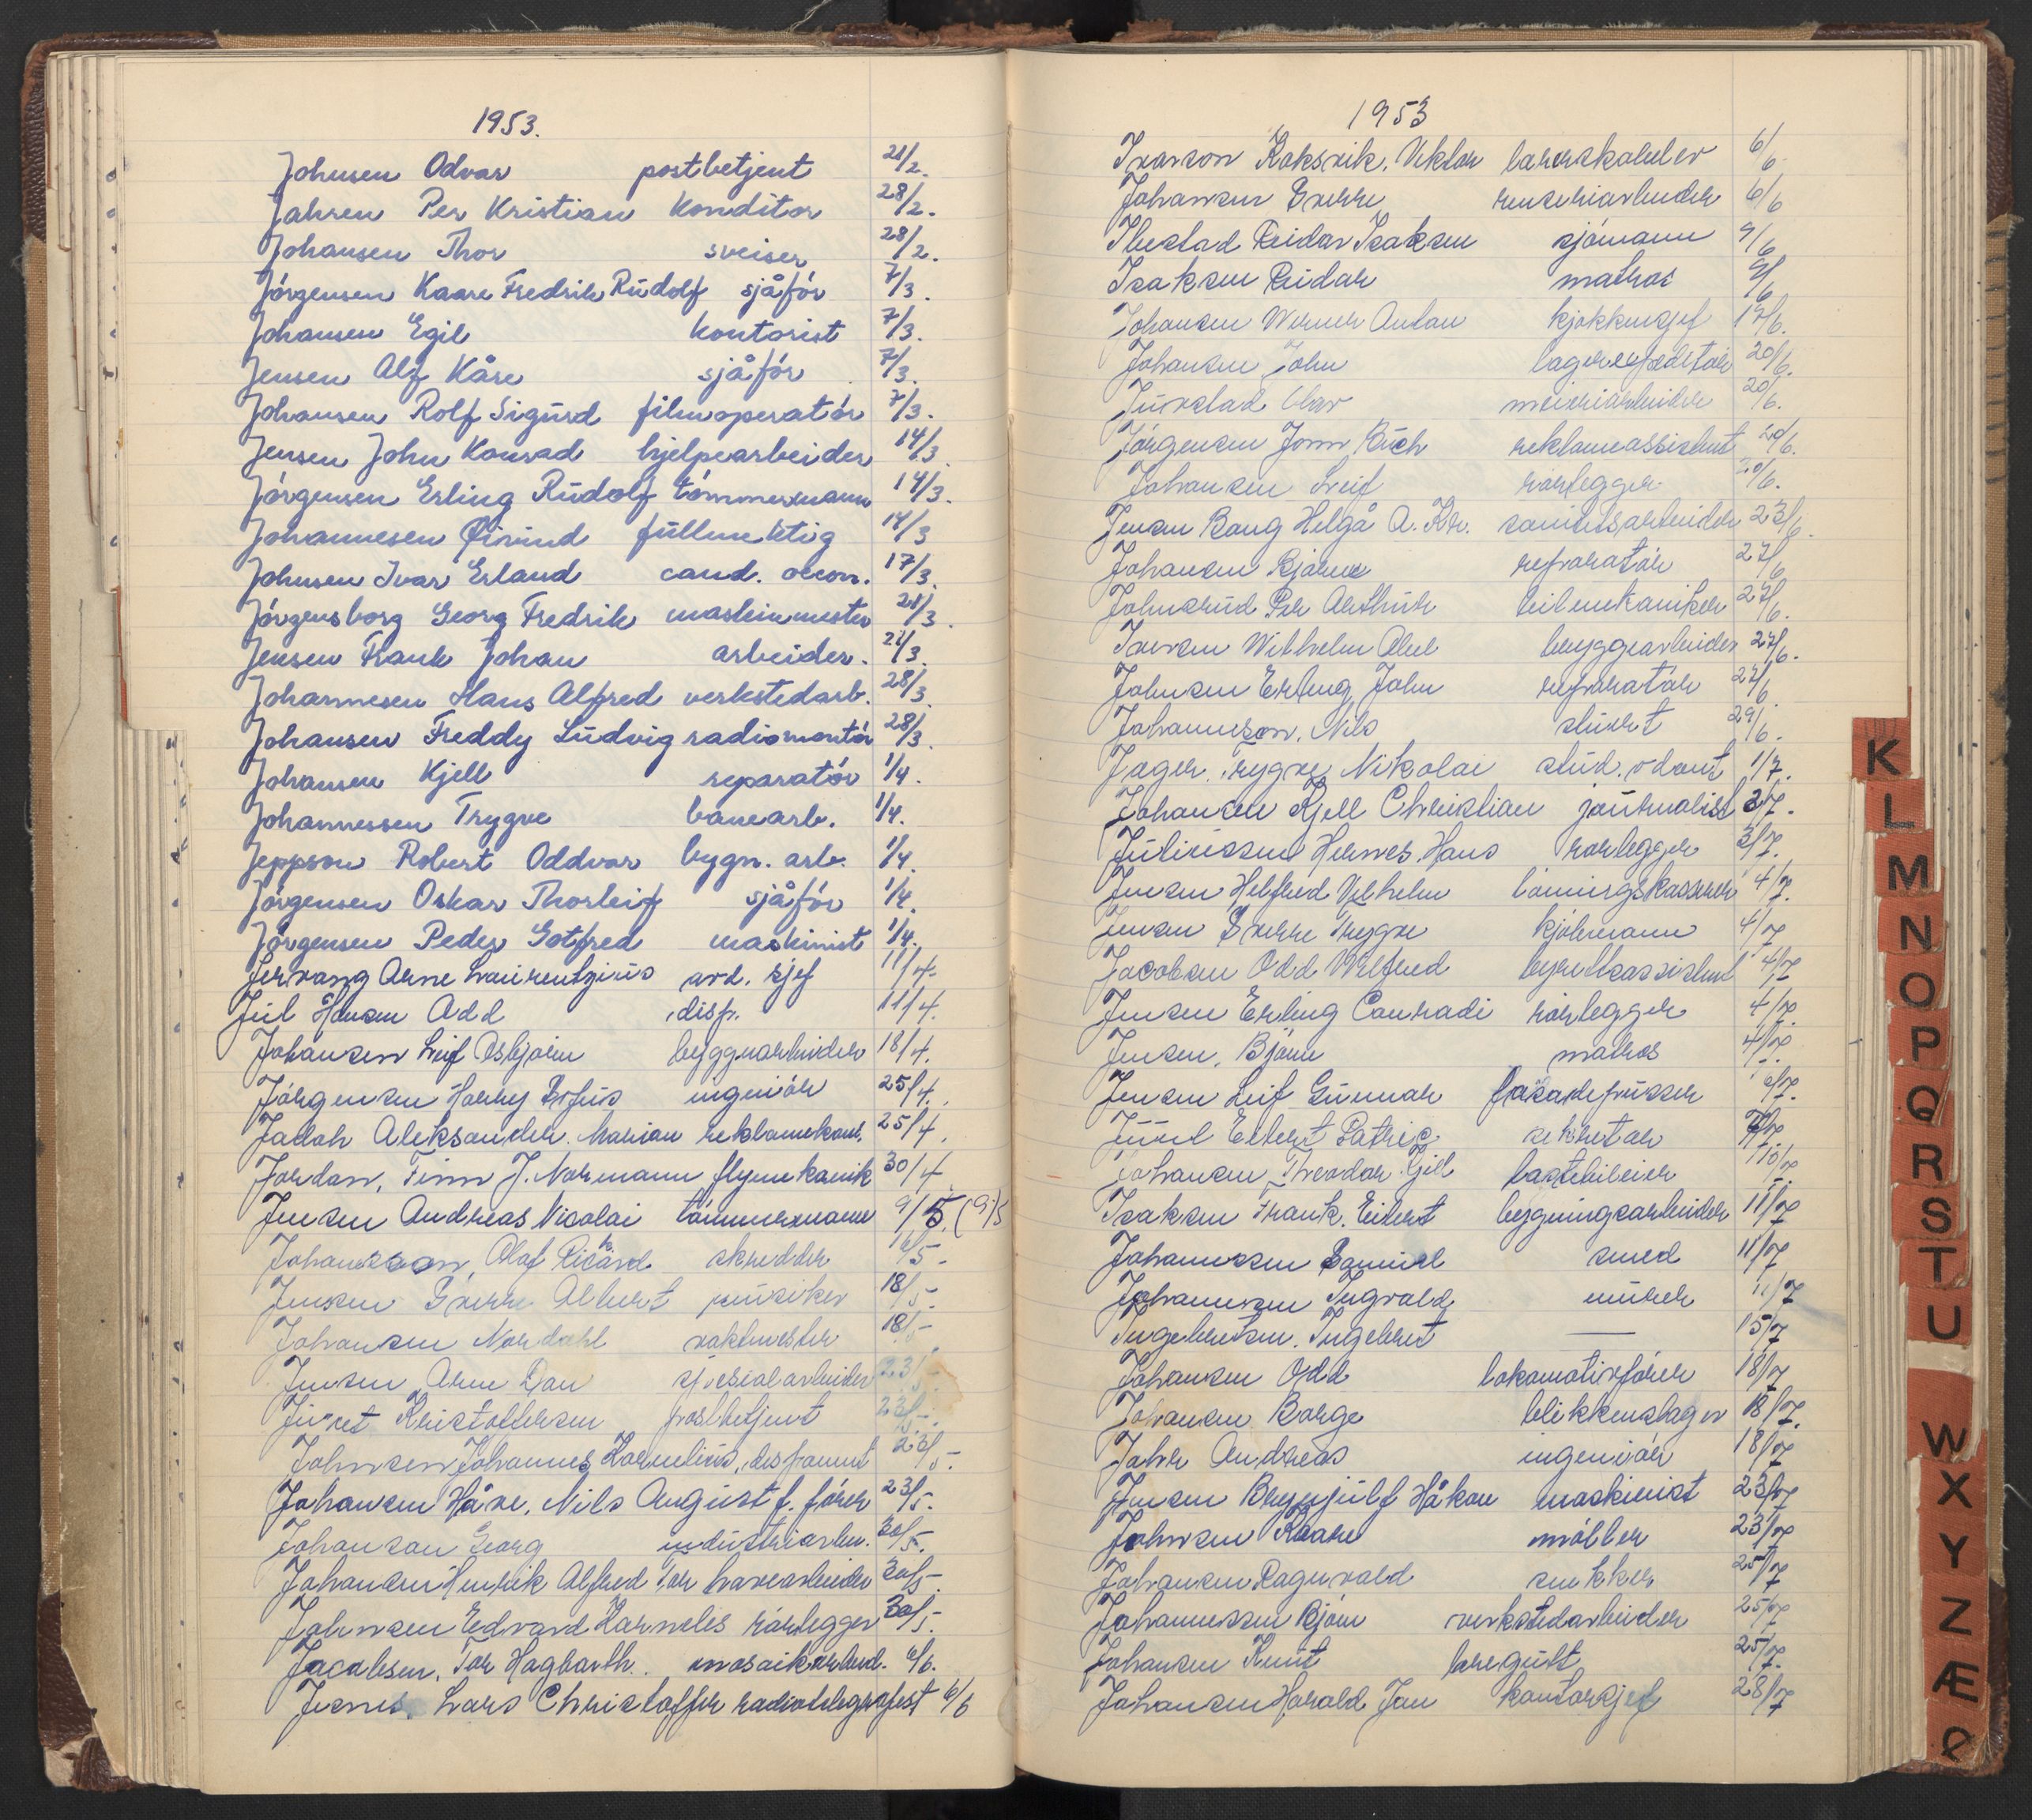 1953.
Johnsen Odvar postbetjent 21/2.
Jahren Per Kristian Konditor 28/2.
Johansen Thor sveiser 28/2.
Jörgensen Kaare Fredrik Rudolf sjåför 7/3.
Johansen Egil kontorist 7/3.
Jensen Alf Kåre sjåför 7/3.
Johansen Rolf Sigurd filmoperatör 7/3.
Jensen John Konrad hjelpearbeider 14/3.
Jörgensen Erling Rudolf tömmermann 14/3.
Johannesen Øivind fullmektig 14/3
Johnsen Ivar Erland cand. oecon. 17/3.
Jörgensborg Georg Fredrik maskinmester 21/3.
Jensen Frank Johan arbeider. 21/3.
Johannesen Hans Alfred verkstedarb. 28/3.
Johansen Freddy Ludvig radiomontör 28/3.
Johansen Kjell reparatör 1/4.
Johannessen Trygve banearb. 1/4.
Jeppson Robert Oddvar bygn. arb. 1/4.
Jörgensen Oskar Thorleif sjåför 1/4.
Jörgensen Peder Gotfred maskinist 1/4.
Jervang Arne Laurentzius avd. sjef 11/4.
Jul Hansen Odd disp. 11/4.
Johansen Leif Asbjörn byggearbeider 18/4.
Jörgensen Harry ingeniör 25/4.
Jadah Aleksander Marian reklamekons. 25/4.
Jordan, Finn J. Normann flymekanik 30/4.
Jensen Andreas Nicolai tömmermann 9/5. (9/5
Johansson, Olaf Rikard skredder 16/5.
Jensen Sverre Albert musiker 18/5.
Johansen Nordahl vaktmester 18/5.
Jensen Arne Dan spesialarbeider 23/5.
Kristoffersen postbetjent 23/5.
Johnsen Johannes Kornelius, disponent 23/5.
Johansen Håve, Nils August f. förer 23/5.
Johansen Georg industriarbei. 30/5.
Johansen Henrik Alfred Tor havearbeider 30/5.
Johnsen Edvard Karneles rörlegger 30/5.
Jacobsen, Tor Hagbarth mosaikarbeid. 6/6.
Lars Christoffer radiotelegrafist 6/6
1953
Ivarson Koksvik, Viktor lærerskoleelev 6/6
Johansen Sverre renseriarbeider 6/6
Ibestad Reidar Isaksen sjömann 9/6
Isaksen Reidar matros 9/6
Johansen Werner Anton kjökkensjef 17/6.
Johansen John lagerexpeditör 20/6.
Juvstad Olav meieriarbeider 20/6.
Jörgensen Jonn Buch reklameassistent 20/6.
Johansen Leif rörlegger 20/6.
Jensen Bang Helge A. Kr. sanitetsarbeider 23/6.
Johansen Bjarne reparatör 27/6
Johnsrud Per Arthur bilmekaniker 27/6.
Iversen Wilhelm Abel bryggearbeider 27/6.
Johnsen Erling John reparatör 27/6
Johannson, Nils stuert 29/6.
Jager Trygve Nikolai stud. odont 1/7.
Johansen Kjell Christian journalist 3/7.
Juliussen Hermes Hans rörlegger 3/7.
Jensen Helfred Vilhelm lönningskasserer 4/7.
Jensen Sverre Trygve kjölemann 4/7
Jacobsen Odd Wilfred byrettsassistent 4/7
Jensen Erling Conradi rörlegger 4/7.
Jensen, Björn matros 4/7.
Jensen Leif Gunnar fasadepusser 6/7.
Juul Eilert Patric sekretær 7/7
Johansen Theodor Gjell lastebileier 10/7
Isaksen Frank Eilert bygningsarbeider 11/7
Johannessen Samuel smed 11/7
Johannesen Ingvald murer 11/7
Ingebretsen, Ingebret — 15/7
Johansen Odd lokomotivförer 18/7
Johansen Börge blikkenslager 18/7.
Jahr Andreas ingeniör 18/7
Jensen Brynjulf Håkon maskinist 23/7
Johnsen Kaare möller 23/7
Johansen Ragnvald snekker 25/7
Johannessen Björn verkstedarbeider 25/7
Johansen Knut laregutt 25/7.
Johansen Harald Jan kontorsjef 28/7
K
L
M
N
O
P
Q
R
S
T
U
W
X
Y
Z
Æ